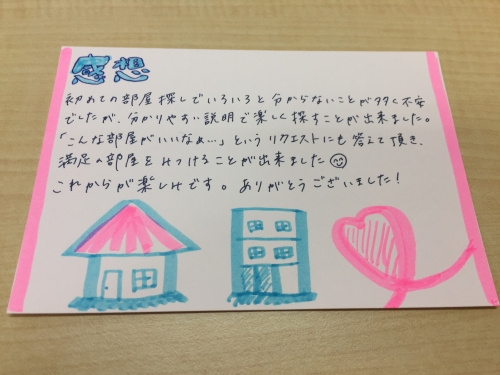 感想
初めての部屋探しでいろいろと分からないことが多く不安
でしたが、分かりやすい説明で楽しく探すことが出来ました。
「こんな部屋がいいなぁ…」というリクエストにも答えて頂き、
満足の部屋をみつけることが出来ました
これからが楽しみです。ありがとうございました!